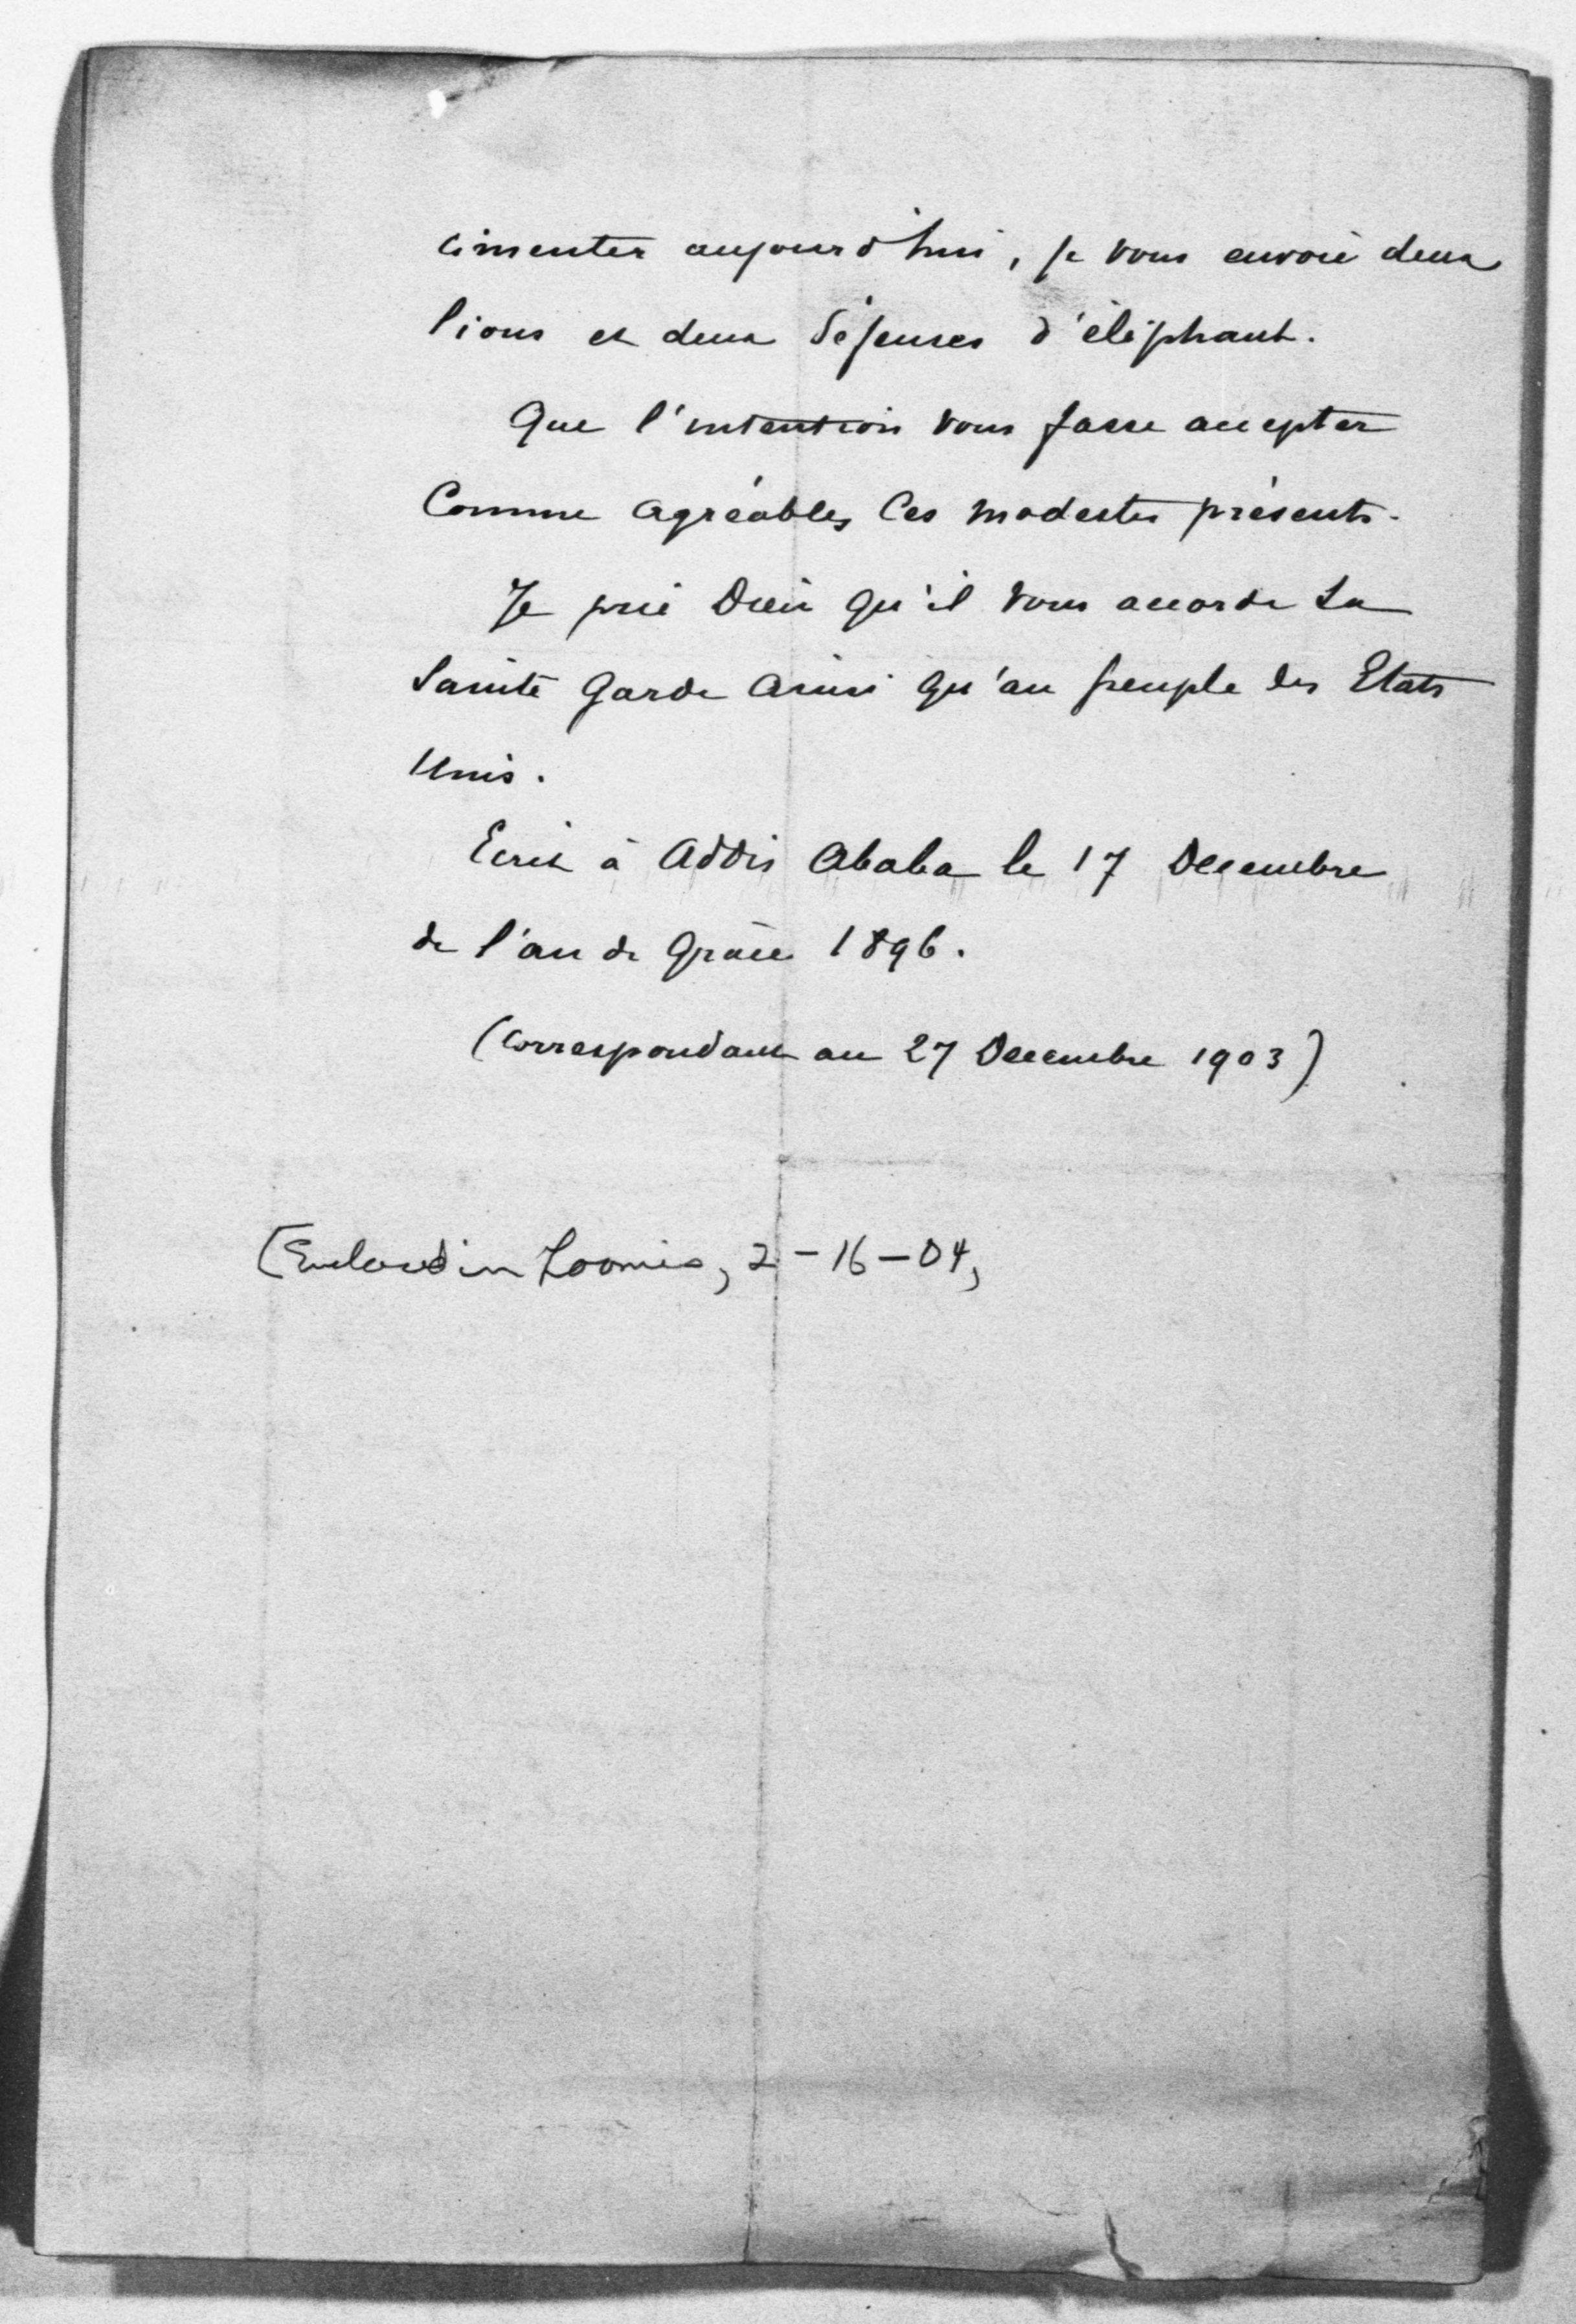 cimenter aujourd'hui, je vous envoie deux
lions et deux défenses d'éléphant.
Que l'intention vous fasse accepter
Comme agréables Ces modestes présents.
Je prie Dieu qu'il vous accorde Sa
Sainte Garde Ainsi qu'au peuple des Etats
Unis.
Ecrit à Addis Ababa le 17 Decembre
de l'an de Grâce 1896.
(Correspondant au 27 Decembre 1903)
(Enclosed in Loomis, 2-16-04,